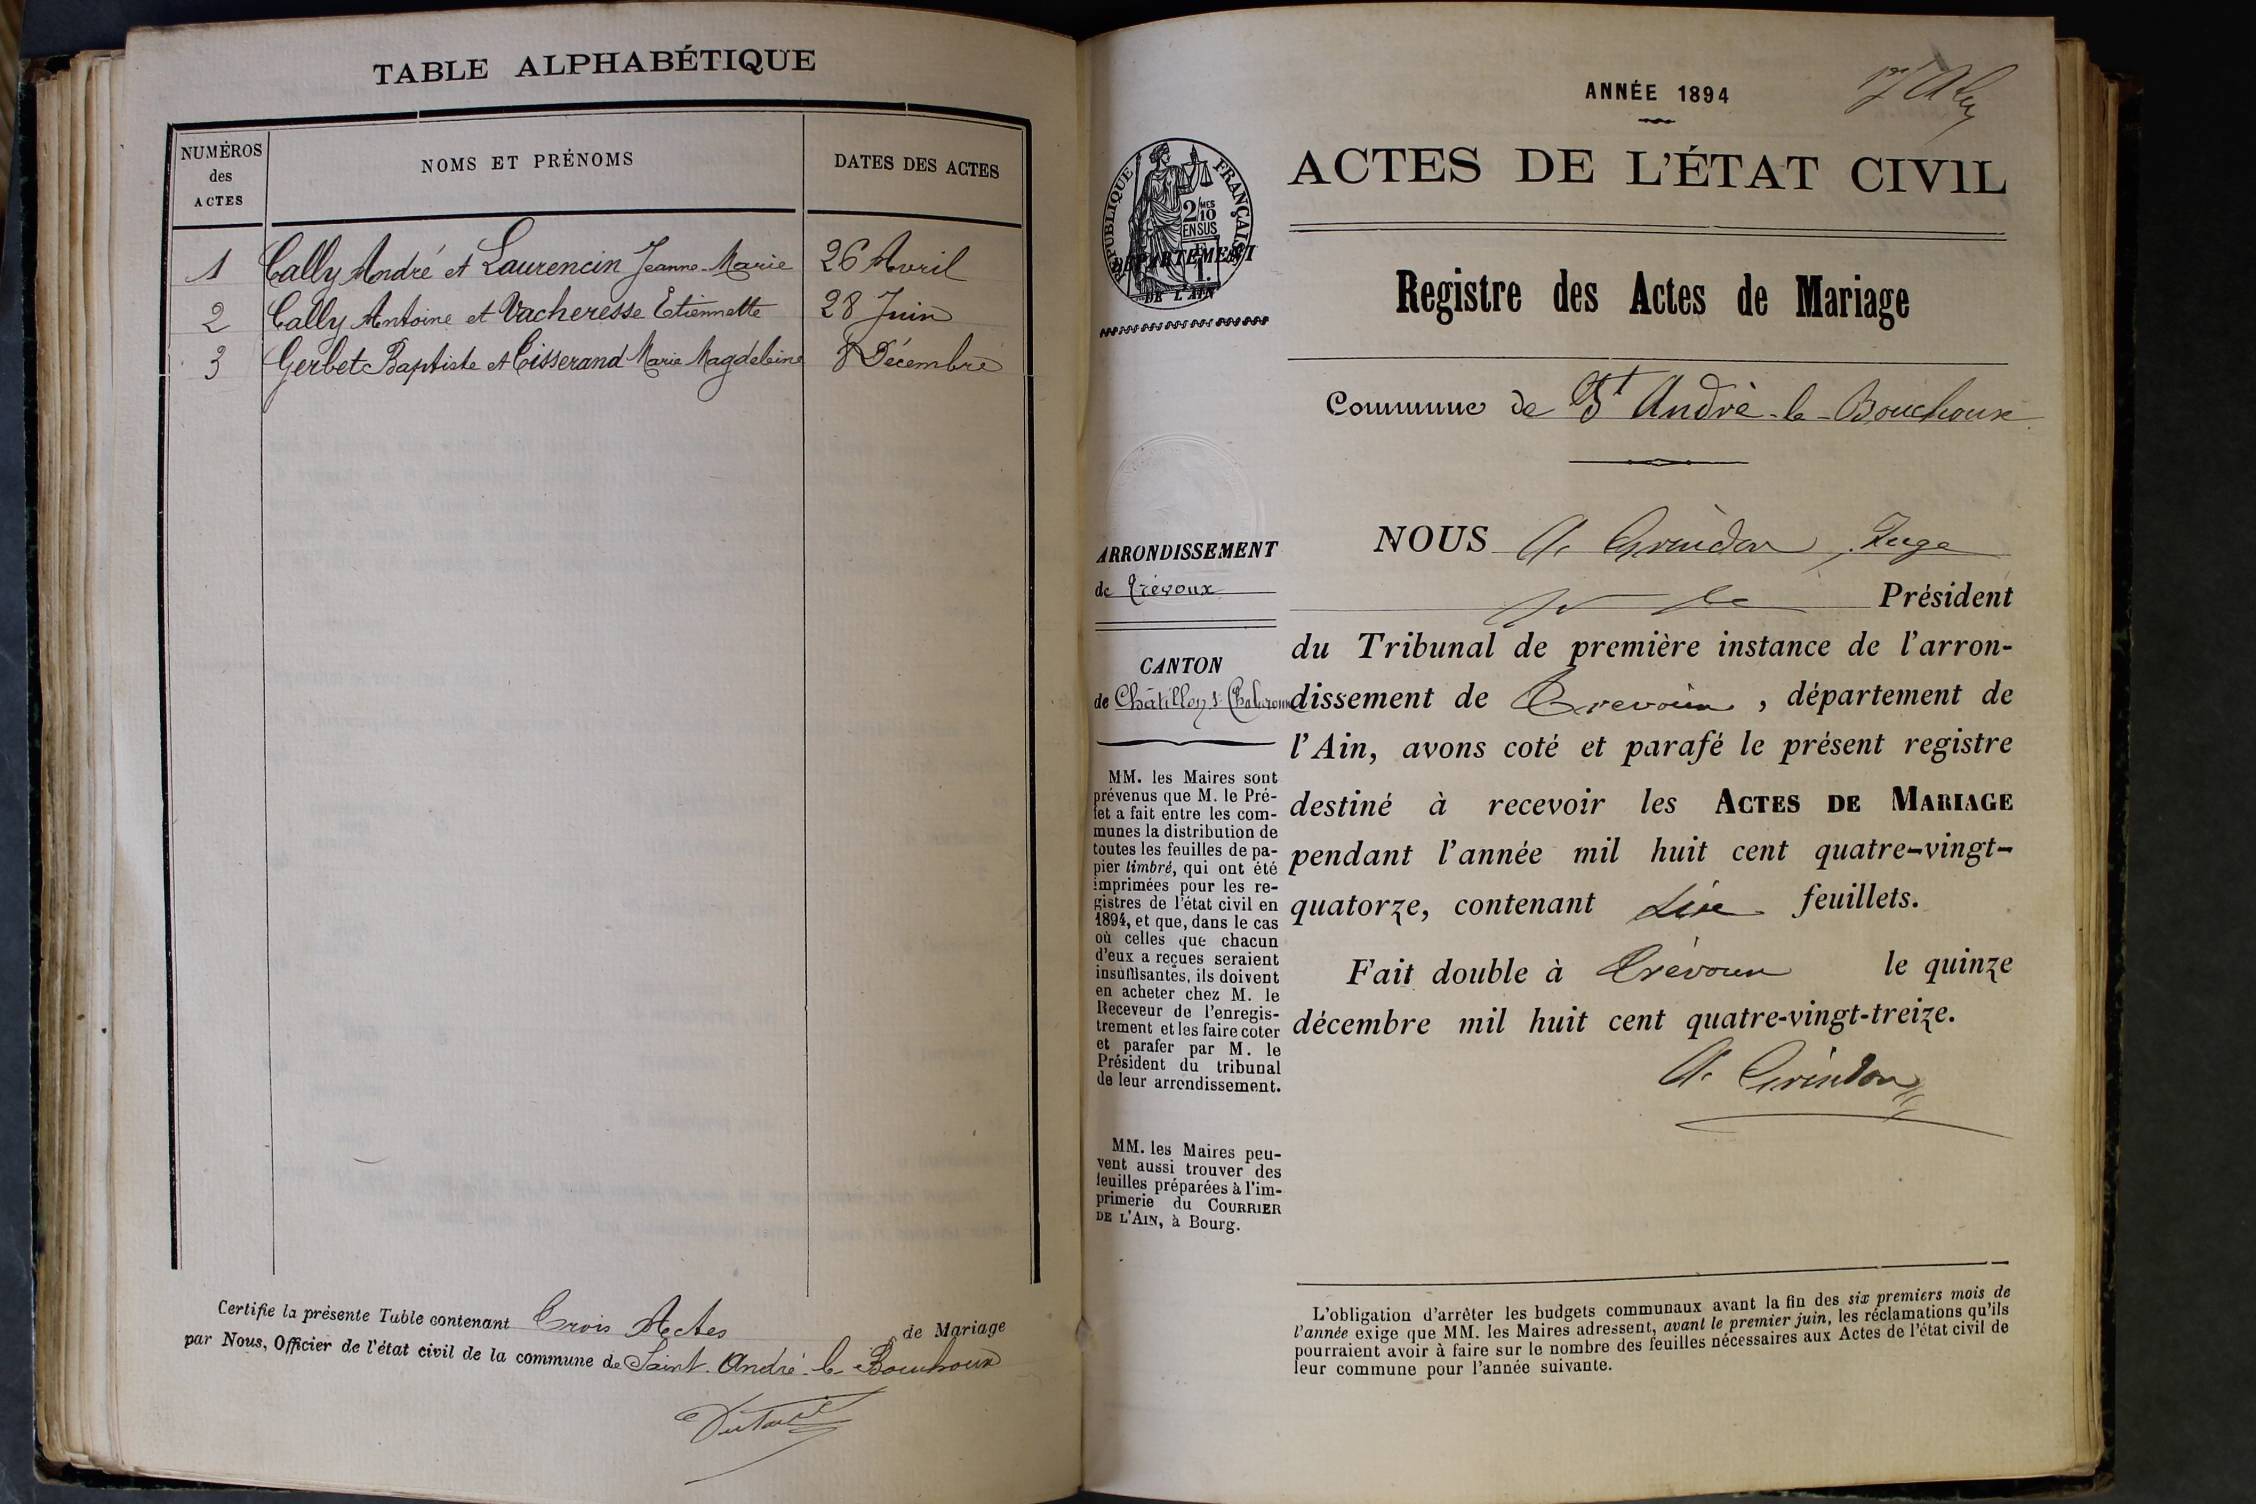 TABLE ALPHABÉTIQUE
NUMÉROS des ACTES
NOMS ET PRÉNOMS
DATES DES ACTES
1 Cally André et Laurencin Jeanne-Marie 26 Avril
2 Cally Antoine et Vacheresse Etiennette 28 Juin
3 Gerbet Baptiste et Tisserand Marie Magdeleine 8 Décembre
Certifie la présente Table contenant Trois Actes de Mariage
par Nous, Officier de l'état civil de la commune de Saint-André-le-Bouchoux
ANNÉE 1894
ACTES DE L'ÉTAT CIVIL
RÉPUBLIQUE FRANÇAISE
2/10 MES
EN SUS
DÉPARTEMENT
DE L'AIN
Registre des Actes de Mariage
Commune de St André-le-Bouchoux
ARRONDISSEMENT
de Trévoux
CANTON
de Châtillon s. Chalaronne
MM. les Maires sont
prévenus que M. le Pré-
fet a fait entre les com-
munes la distribution de
toutes les feuilles de pa-
pier timbré, qui ont été
imprimées pour les re-
gistres de l'état civil en
1894, et que, dans le cas
où celles que chacun
d'eux a reçues seraient
insuffisantes, ils doivent
en acheter chez M. le
Receveur de l'enregis-
trement et les faire coter
et parafer par M. le
Président du tribunal
de leur arrondissement.
MM. les Maires peu-
vent aussi trouver des
feuilles préparées à l'im-
primerie du COURRIER
DE L'AIN, à Bourg.
NOUS A. Grindon, Juge
Président
du Tribunal de première instance de l'arron-
dissement de Trevoux, département de
l'Ain, avons coté et parafé le présent registre
destiné à recevoir les ACTES DE MARIAGE
pendant l'année mil huit cent quatre-vingt-
quatorze, contenant feuillets.
Fait double à Trévoux le quinze
décembre mil huit cent quatre-vingt-treize.
A. Grindon
L'obligation d'arrêter les budgets communaux avant la fin des six premiers mois de
l'année exige que MM. les Maires adressent, avant le premier juin, les réclamations qu'ils
pourraient avoir à faire sur le nombre des feuilles nécessaires aux Actes de l'état civil de
leur commune pour l'année suivante.